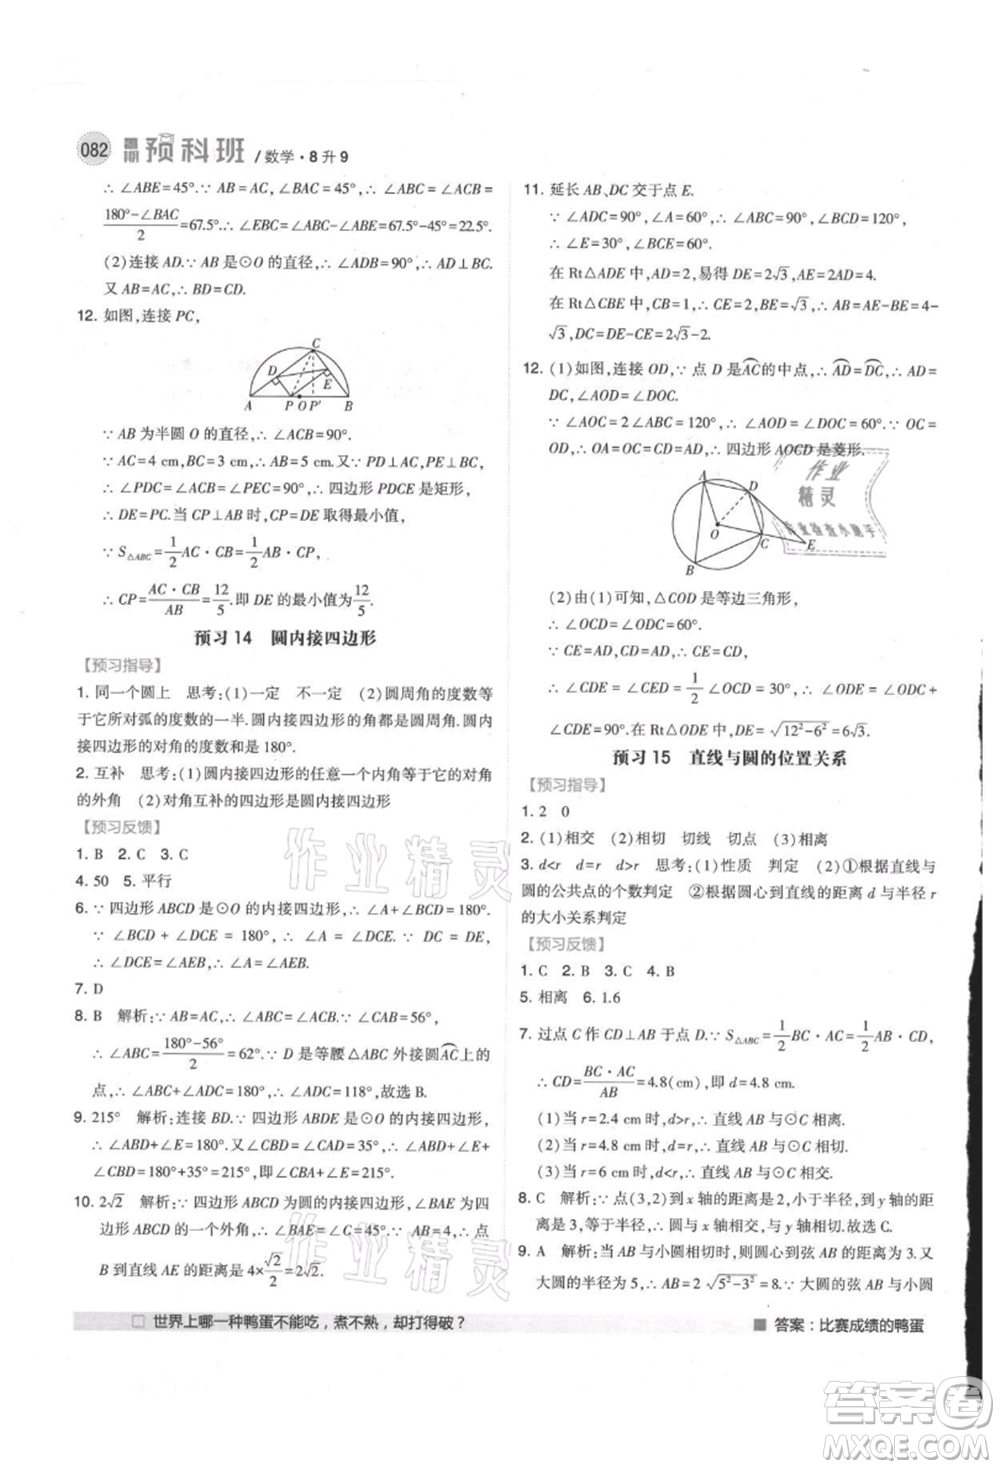 082 暑期 预科班 / 数学·8升9
∴ ∠ABE=45°.∵ AB=AC,∴ ∠ABC=∠C=
(180°-∠BAC)/2=67.5°.∴ ∠EBC=∠ABC-∠ABE=67.5°-45°=22.5°.
(2)连接 AD.∵ AB 是⊙O 的直径,∴ ∠ADB=90°,∴ AD⊥BC.
又 AB=AC,∴ BD=CD.
12. 如图,连接 PC,
C
D
E
A P O P′ B
∵ AB 为半圆 O 的直径,∴ ∠ACB=90°.
∵ AC=4 cm,BC=3 cm,∴ AB=5 cm.又 PD⊥AC,PE⊥BC,
∴ ∠PDC=∠PEC=∠ACB=90°,∴ 四边形 PDCE 是矩形,
∴ DE=PC.当 CP⊥AB 时,CP,DE 取得最小值,
∵ S△ABC=1/2 AC·CB=1/2 AB·CP,
∴ CP=AC·CB/AB=12/5.即 DE 的最小值为12/5.
预习 14 圆内接四边形
【预习指导】
1. 同一个圆上 思考:(1)一定 不一定 (2)圆周角的度数等
于它所对弧的度数的一半.圆内接四边形的角都是圆周角.圆内
接四边形的对角的度数和是 180°.
2. 互补 思考:(1)圆内接四边形的任意一个内角等于它的对角
的外角 (2)对角互补的四边形是圆内接四边形
【预习反馈】
1. B 2. C 3. C
4. 50 5. 平行
6. ∵ 四边形 ABCD 是⊙O 的内接四边形,∴ ∠A+∠BCD=180°.
∵ ∠DCE+∠BCD=180°,∴ ∠A=∠DCE.∵ DC=DE,
∴ ∠DCE=∠AEB,∴ ∠A=∠AEB.
7. D
8. B 解析:∵ AB=AC,∴ ∠ABC=∠ACB.∵ ∠CAB=56°,
∴ ∠ABC=(180°-56°)/2=62°.∵ D 是等腰△ABC 外接圆AC上一
点,∴ ∠ABC+∠ADC=180°,∴ ∠ADC=118°,故选 B.
9. 215° 解析:连接 BD.∵ 四边形 ABDE 是⊙O 的内接四边形,
∴ ∠ABD+∠E=180°.又∵ ∠CBD=∠CAD=35°,∴ ∠ABD+∠E+
∠CBD=180°+35°=215°,即∠CBA+∠E=215°.
10. 2√2 解析:∵ 四边形 ABCD 为圆的内接四边形,∠BAE 为四
边形 ABCD 的一个外角,∴ ∠BAE=∠C=45°.∵ AB=4,∴ 点
B 到直线 AE 的距离是 4×√2/2=2√2.
11. 延长 AB、DC 交于点 E.
∵ ∠ADC=90°,∠A=60°,∠ABC=90°,∠BCD=120°,
∴ ∠E=30°,∠BCE=60°.
在 Rt△ADE 中,AD=2,易得 DE=2√3,AE=4.
在 Rt△CBE 中,BC=1,∴ BE=√3,∴ AB=AE-BE=4-
√3,CD=DE-CE=2√3-2.
12. (1)如图,连接 OD,∵ 点 D 是AC的中点,∴ AD=DC,∴ AD=
DC,∴ ∠AOD=∠DOC.
∵ ∠AOC=2∠ABC=120°,∴ ∠AOD=∠DOC=60°.∵ OC=
OD,∴ OA=OC=CD=AD,∴ 四边形 AOCD 是菱形.
A
D
O
C
E
B
(2)由(1)可知,△COD 是等边三角形,
∴ ∠OCD=∠COD=∠ODC=60°.
∵ CE=CD,∴ CD=CE=OC=6.
∴ ∠CDE=∠CED=1/2∠OCD=30°,∴ ∠ODE=∠ODC+
∠CDE=90°.在 Rt△ODE 中,DE=√(12²-6²)=6√3.
预习 15 直线与圆的位置关系
【预习指导】
1. 2 0
2. (1)相交 (2)相切 切线 切点 (3)相离
3. d<r d=r d>r 思考:(1)性质 判定 (2)①根据直线与
圆的公共点的个数判定 ②根据圆心到直线的距离 d 与半径 r
的大小关系判定
【预习反馈】
1. C 2. B 3. C 4. B
5. 相离 6. 1.6
7. 过点 C 作 CD⊥AB 于点 D.∵ S△ABC=1/2 BC·AC=1/2 AB·CD,
∴ CD=BC·AC/AB=4.8(cm),即 d=4.8 cm.
(1)当 r=2.4 cm 时,d>r,∴ 直线 AB 与⊙C 相离.
(2)当 r=4.8 cm 时,d=r,∴ 直线 AB 与⊙C 相切.
(3)当 r=6 cm 时,d<r,∴ 直线 AB 与⊙C 相交.
8. C 解析:∵ 点(3,2)到 x 轴的距离是 2,小于半径,到 y 轴的
距离是 3,等于半径,∴ 圆与 x 轴相交,与 y 轴相切.故选 C.
9. A 解析:当 AB 与小圆相切时,∵ 大圆的半径为 5,小圆的半径为 3,∴ AB=2√(5²-3²)=8.∵ 大圆的弦 AB 与小圆
□ 世界上哪一种鸭蛋不能吃,煮不熟,却打得破?
■ 答案:比赛成绩的鸭蛋
作业精灵
作业精灵
作业精灵
作业检查小助手
答案圈
MXQE.COM